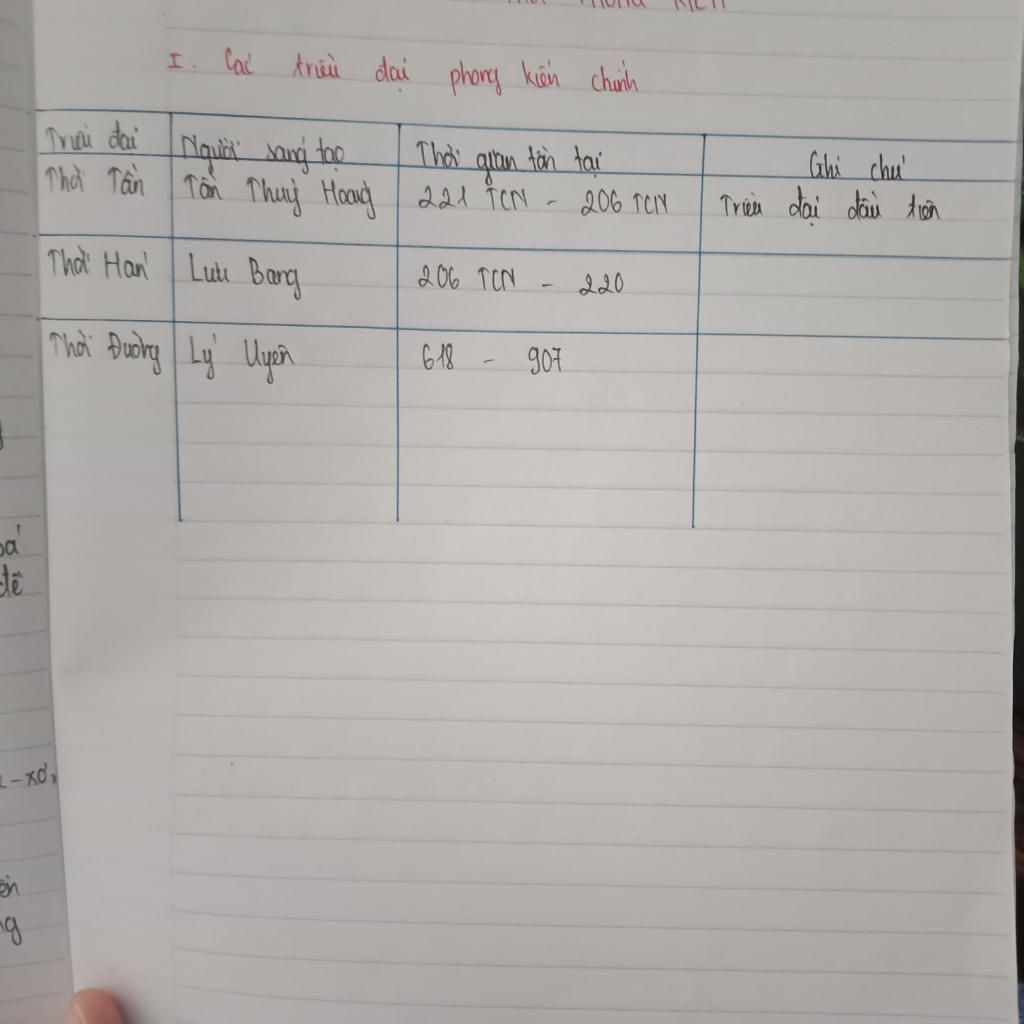 I. Các triều đại phong kiến chính
Triều đại | Người sáng tạo | Thời gian tồn tại | Ghi chú
Thời Tần | Tần Thuỷ Hoàng | 221 TCN - 206 TCN | Triều đại đầu tiên
Thời Hán | Lưu Bang | 206 TCN - 220
Thời Đường | Lý Uyên | 618 - 907